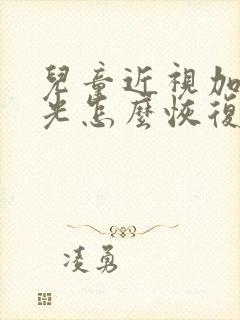 兒童近視加
光怎麼恢復
凌勇